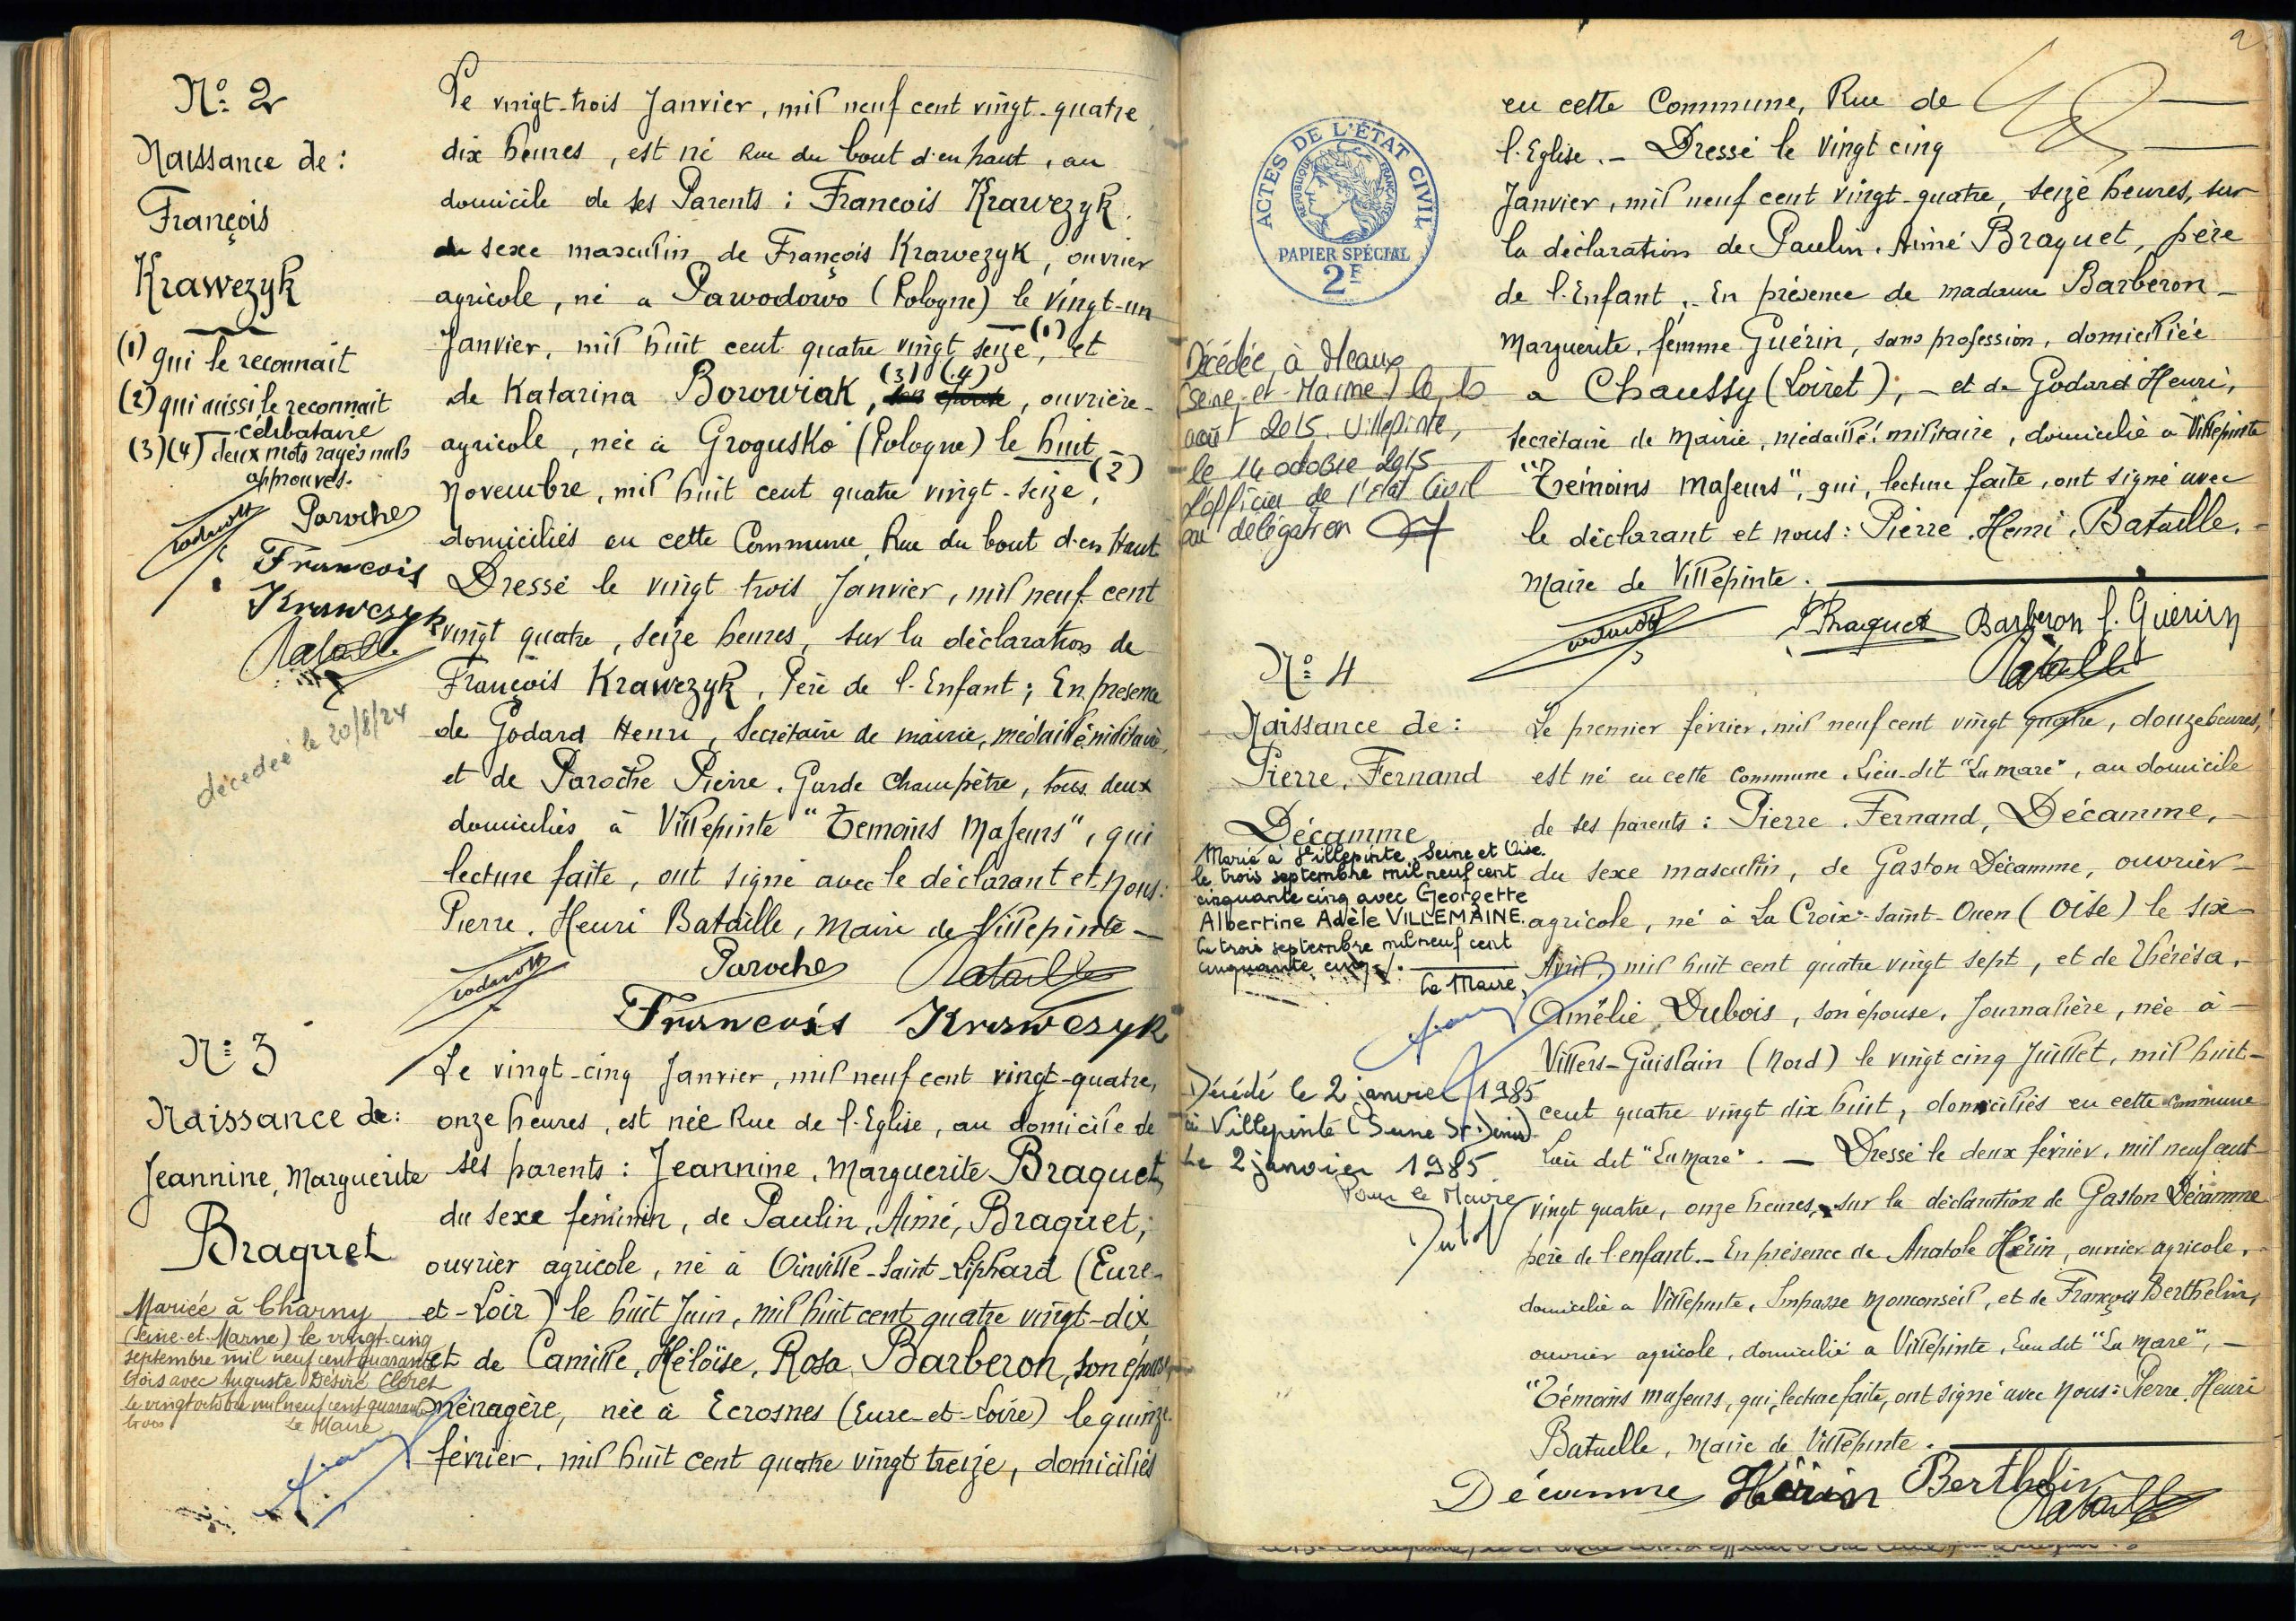 Nº 2
Naissance de :
François
Krawezyk
(1) qui le reconnait
(2) qui aussi le reconnait
célibataire
(3)(4) deux mots rayés nuls
approuvés.
Paroche
Francois
Krawczyk
Bataille
décédée le 20/8/24
Le vingt-trois Janvier, mil neuf cent vingt-quatre,
dix heures, est né Rue du bout d'en haut, au
domicile de ses Parents : Francois Krawezyk,
du sexe masculin de François Krawezyk, ouvrier
agricole, né a Pawodowo (Pologne) le vingt-un
Janvier, mil huit cent quatre vingt seize (1), et
de Katarina Borowiak, (3) (4) son épouse, ouvrière-
agricole, née à Grogusko (Pologne) le huit
Novembre, mil huit cent quatre vingt-seize, (2)
domiciliés en cette Commune Rue du bout d'en Haut
Dressé le vingt trois Janvier, mil neuf cent
vingt quatre, seize heures, sur la déclaration de
François Krawezyk, Père de l'Enfant ; En presence
de Godard Henri, Secrétaire de mairie, médaillé militaire,
et de Paroche Pierre, Garde Champêtre, tous deux
domiciliés à Villepinte "Temoins Majeurs", qui
lecture faite, ont signé avec le déclarant et Nous :
Pierre, Henri Bataille, Maire de Villepinte -
Paroche Bataille
Francois Krawczyk
Nº 3
Naissance de :
Jeannine, Marguerite
Braquet
Mariée à Charny
(Seine-et-Marne) le vingt-cinq
septembre mil neuf cent quarante
trois avec Auguste Désiré Cléret
le vingt octobre mil neuf cent quarante
trois
Le Maire
Le vingt-cinq Janvier, mil neuf cent vingt-quatre,
onze heures, est née Rue de l'Eglise, au domicile de
ses parents : Jeannine, Marguerite Braquet,
du sexe féminin, de Paulin, Aimé, Braquet,
ouvrier agricole, né à Oinville-Saint-Liphard (Eure-
et-Loir) le huit Juin, mil huit cent quatre vingt-dix
et de Camille, Héloïse, Rosa, Barberon, son épouse,
ménagère, née à Ecrosnes (Eure-et-Loire) le quinze
février, mil huit cent quatre vingt treize, domiciliés
2
en cette Commune, Rue de
l'Eglise. - Dressé le Vingt cinq
Janvier, mil neuf cent vingt-quatre, seize heures, sur
la déclaration de Paulin, Aimé Braquet, père
de l'Enfant. - En présence de madame Barberon -
Marguerite, femme Guérin, sans profession, domiciliée
a Chaussy (Loiret), - et de Godard Henri,
Secrétaire de Mairie, médaillé militaire, domicilié à Villepinte
"Témoins Majeurs", qui, lecture faite, ont signé avec
le déclarant et nous : Pierre, Henri, Bataille, -
Maire de Villepinte.
PBraquet Barberon f. Guérin
Bataille
ACTES DE L'ÉTAT CIVIL
RÉPUBLIQUE FRANÇAISE
PAPIER SPÉCIAL
2F
Décédée à Meaux
(Seine-et-Marne) le
août 2015. Villepinte,
le 14 octobre 2015
L'officier de l'Etat Civil
par délégation
Nº 4
Naissance de :
Pierre, Fernand
Décamme
Marié à Villepinte, Seine et Oise.
le trois septembre mil neuf cent
cinquante cinq avec Georgette
Albertine Adèle VILLEMAINE.
Le trois septembre mil neuf cent
cinquante cinq ./.
Le Maire,
Décédé le 2 janvier 1985
à Villepinte (Seine St Denis)
Le 2 janvier 1985
Pour le Maire
Le premier février, mil neuf cent vingt quatre, douze heures,
est né en cette Commune, Lieu-dit "La mare", au domicile
de ses parents : Pierre, Fernand, Décamme, -
du sexe masculin, de Gaston Décamme, ouvrier -
agricole, né à La Croix-Saint-Ouen (Oise) le six -
Avril, mil huit cent quatre vingt sept, et de Thérésa, -
Amélie Dubois, son épouse, Journalière, née à -
Villers-Guislain (Nord) le vingt cinq Juillet, mil huit -
cent quatre vingt dix huit, domiciliés en cette Commune
Lieu dit "La Mare". - Dressé le deux février, mil neuf cent
vingt quatre, onze heures, sur la déclaration de Gaston Décamme
père de l'enfant. - En présence de Anatole Hérin, ouvrier agricole, -
domicilié a Villepinte, Impasse Monconseil, et de François Berthelin,
ouvrier agricole, domicilié a Villepinte, Lieu dit "La Mare", -
"Témoins majeurs, qui, lecture faite, ont signé avec Nous : Pierre, Henri
Bataille, Maire de Villepinte.
Décamme Hérin Berthelin
Bataille